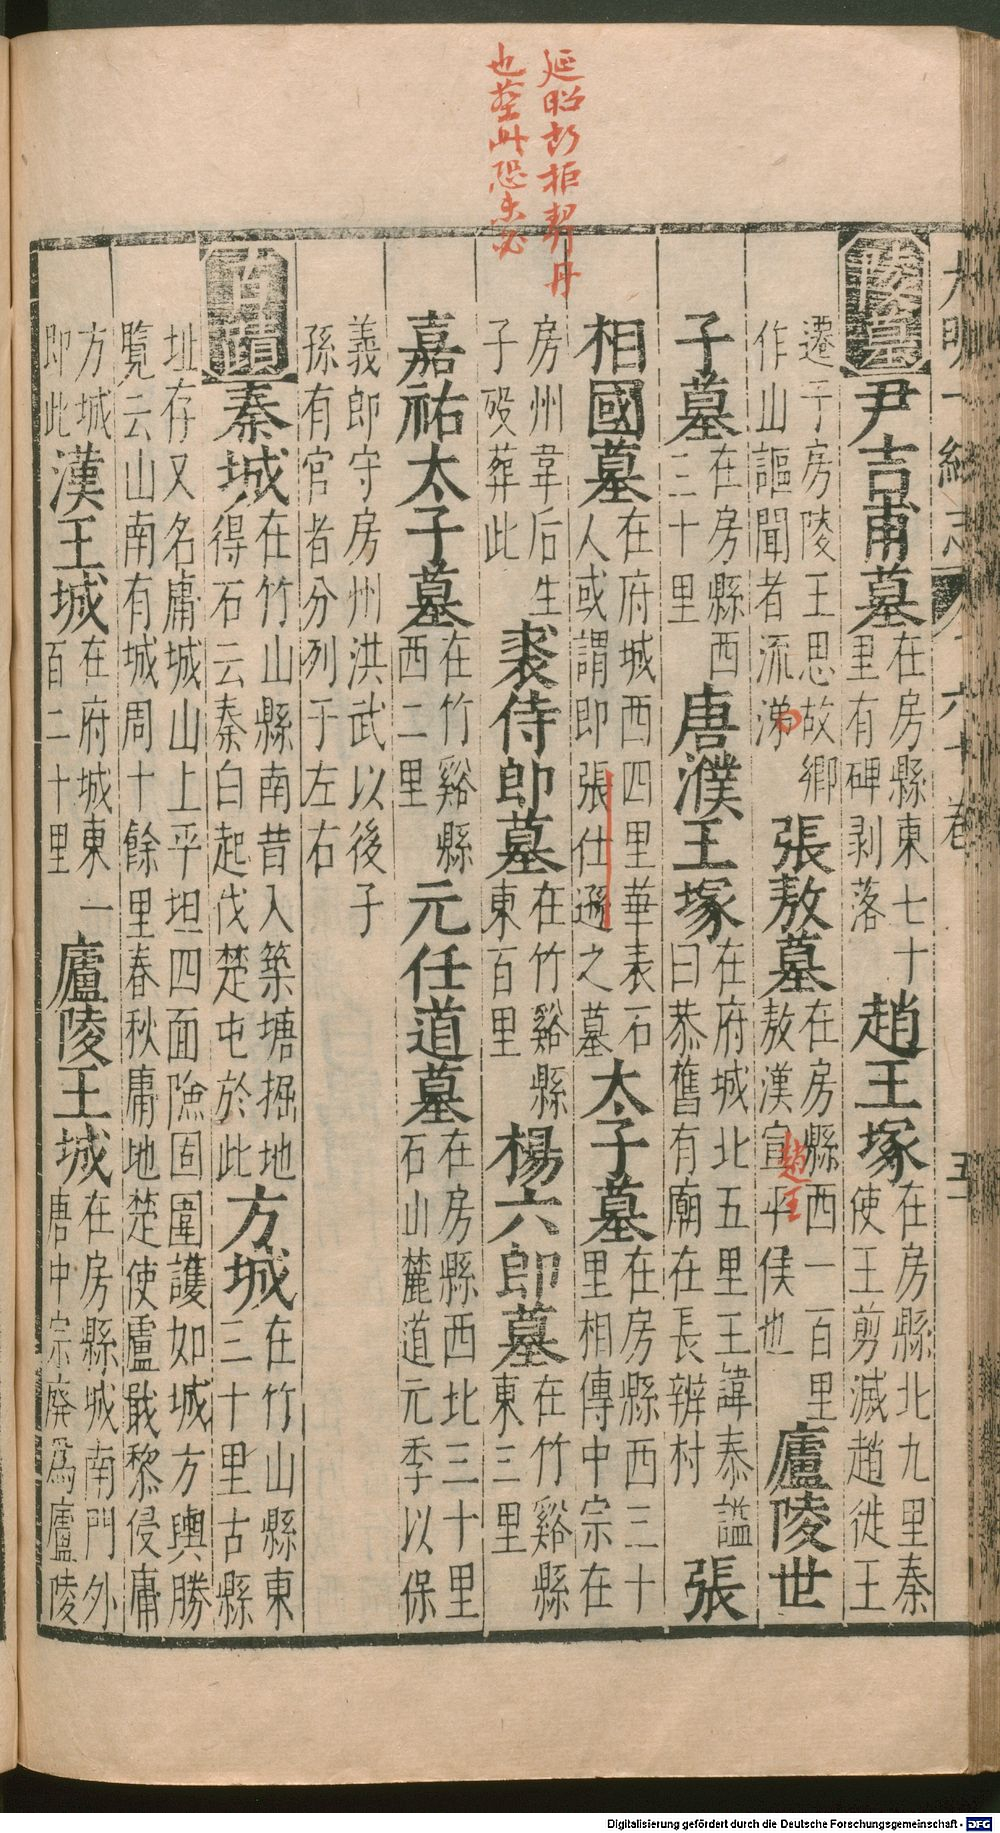 延昭昔拒契丹
也塟此恐未必
大明一統志
六十卷
五
陵墓
尹吉甫墓
在房縣東七十
里有碑剥落
趙王塚
在房縣北九里秦
使王剪滅趙徙王
遷于房陵王思故鄉
作山謳聞者流涕
張敖墓
在房縣西一百里
敖漢宣平侯也
趙王
廬陵世
子墓
在房縣西
三十里
唐濮王塚
在府城北五里王諱泰謚
曰恭舊有廟在長辨村
張
相國墓
在府城西四里華表石
人或謂即張仕遜之墓
太子墓
在房縣西三十
里相傳中宗在
房州韋后生
子殁葬此
裘侍郎墓
在竹谿縣
東百里
楊六郎墓
在竹谿縣
東三里
嘉祐太子墓
在竹谿縣
西二里
元任道墓
在房縣西北三十里
石山麓道元季以保
義郎守房州洪武以後子
孫有官者分列于左右
古蹟
秦城
在竹山縣南昔入築塘掘地
得石云秦白起伐楚屯於此
方城
在竹山縣東
三十里古縣
址存又名庸城山上平坦四面險固圍護如城方輿勝
覽云山南有城周十餘里春秋庸地楚使廬戢黎侵庸
方城
即此
漢王城
在府城東一
百二十里
廬陵王城
在房縣城南門外
唐中宗廢爲廬陵
Digitalisierung gefördert durch die Deutsche Forschungsgemeinschaft - DFG